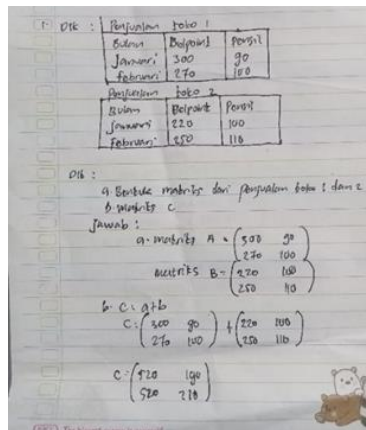 1. Dik : Penjualan toko 1
Bulan Bolpoint Pensil
Januari 300 90
Februari 270 100
Penjualan toko 2
Bulan Bolpoint Pensil
Januari 220 100
Februari 250 110
Dib :
a. Bentuk matriks dari penjualan toko 1 dan 2
b. matriks C
Jawab :
a. matriks A = (300 90
270 100)
matriks B = (220 100
250 110)
b. C = a+b
C = (300 90
270 100) + (220 100
250 110)
C = (520 190
520 210)